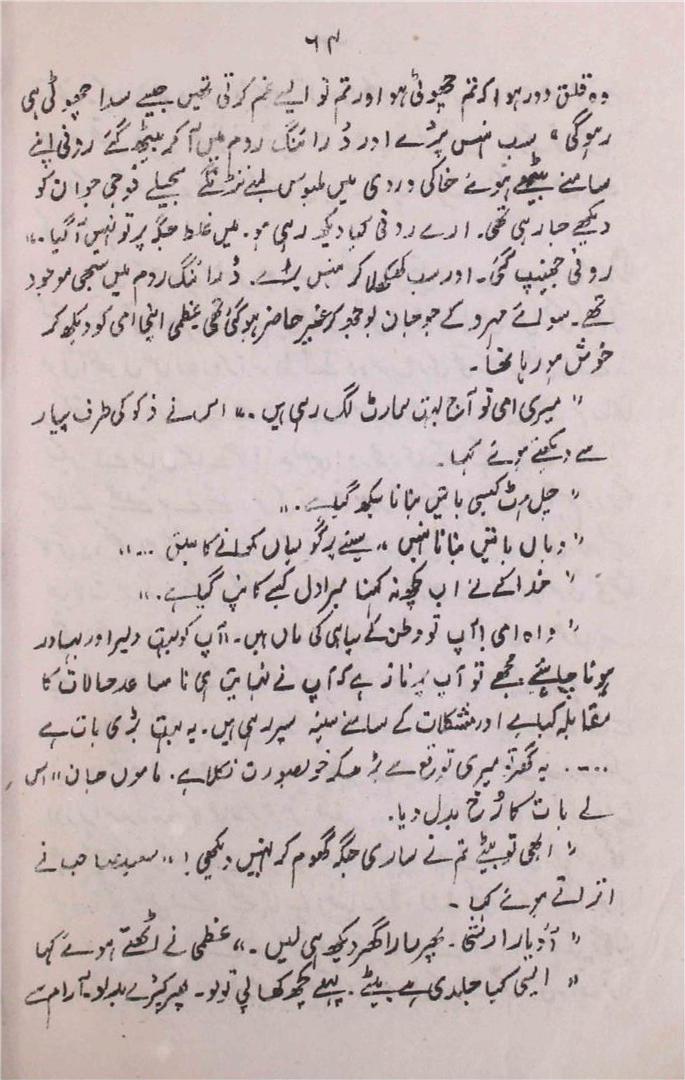 ۶۴
وہ قلق دور ہوا کہ تم چھوٹی ہو اور تم تو ایسے غم کرتی تھیں جیسے سدا چھوٹی ہی
رہوگی" سب ہنس پڑے اور ڈرائنگ روم میں آ کر بیٹھ گئے روفی اپنے
سامنے بیٹھے ہوئے خاکی وردی میں ملبوس لمبے تڑنگے سجیلے فوجی جوان کو
دیکھے جا رہی تھی۔ ارے روفی کیا دیکھ رہی ہو۔ میں غلط جگہ پر تو نہیں آگیا۔"
روفی جھینپ گئی۔ اور سب کھلکھلا کر ہنس پڑے۔ ڈرائنگ روم میں سبھی موجود
تھے۔ سوائے مہرو کے جو جان بوجھ کر غیر حاضر ہوگئی تھی عظمی اپنی امی کو دیکھ کر
خوش ہو رہا تھا۔
" میری امی تو آج بہت سمارٹ لگ رہی ہیں۔" اس نے ذکو کی طرف پیار
سے دیکھتے ہوئے کہا۔
" چل ہٹ کیسی باتیں بنانا سیکھ گیا ہے۔"
" وہاں باتیں بنانا نہیں، سینے پر گولیاں کھانے کا سبق ...."
" خدا کے لئے اب کچھ نہ کہنا میرا دل کیسے کانپ گیا ہے۔"
" واہ امی! آپ تو وطن کے سپاہی کی ماں ہیں۔ آپ کو بہت دلیر اور بہادر
ہونا چاہئیے مجھے تو آپ پر ناز ہے کہ آپ نے نہایت ہی نامساعد حالات کا
مقابلہ کیا ہے اور مشکلات کے سامنے سینہ سپر رہی ہیں۔ یہ بہت بڑی بات ہے
.... یہ گھر تو میری توقع سے بڑھ کر خوبصورت نکلا ہے۔ ماموں جان" اس
نے بات کا رُخ بدل دیا۔
" ابھی تو بیٹے تم نے ساری جگہ گھوم کر نہیں دیکھی!" سعید صاحب نے
اتراتے ہوئے کہا۔
" آؤ یار ارتضیٰ۔ پھر سارا گھر دیکھ ہی لیں۔" عظمی نے اٹھتے ہوئے کہا
" ایسی کیا جلدی ہے بیٹے۔ پہلے کچھ کھا پی تو لو۔ پھر کپڑے بدلو۔ آرام سے